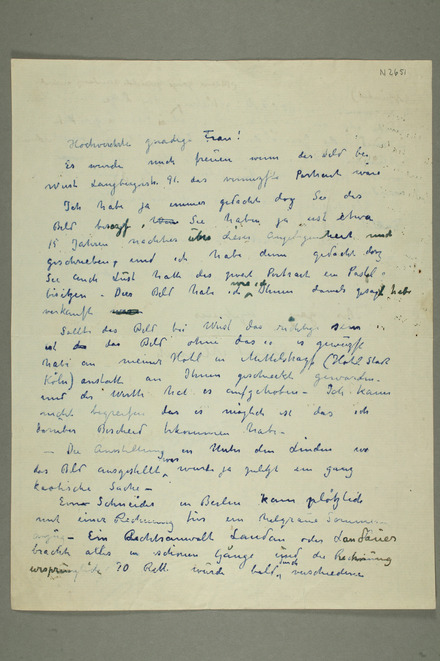 N2651
Hochverehrte gnädige Frau!
Es würde mich freuen wenn das Bild bei
Wüst Langbergerstr. 91. das vermisste Portrait wäre
Ich habe ja immer gedacht dass Sie das
Bild Sie haben ja erst etwa
15 Jahren nachher über diese Angelegenheit mir
geschrieben, und ich habe dann gedacht dass
Sie auch Lust hatte das zweite Portrait in Pastel
besitzen - Das Bild habe ich Ihnen damals gesagt habe
verkauft
Sollte das Bild bei Wüst das richtige sein
ist das Bild ohne das es gewusst
habe an meine in (Hotel Stadt
Köln) anstatt an Ihnen geschickt geworden -
und die hat es aufgehoben - Ich kann
nicht begreifen das es möglich ist das ich
darüber Bescheid bekommen habe -
- Die Ausstellung in Unter den Linden wo
das Bild ausgestellt war wurde ja zuletzt ein ganz
kaotische Sache -
Ein Schneider in Berlin kam plötzlich
mit einer Rechnung für ein hellgraue Sommer
- Ein Rechtsanwalt Landau oder Landauer
brachte alles in schönen Gänge und die Rechnung
ursprünglich 70 wurde bald durch verschiedene